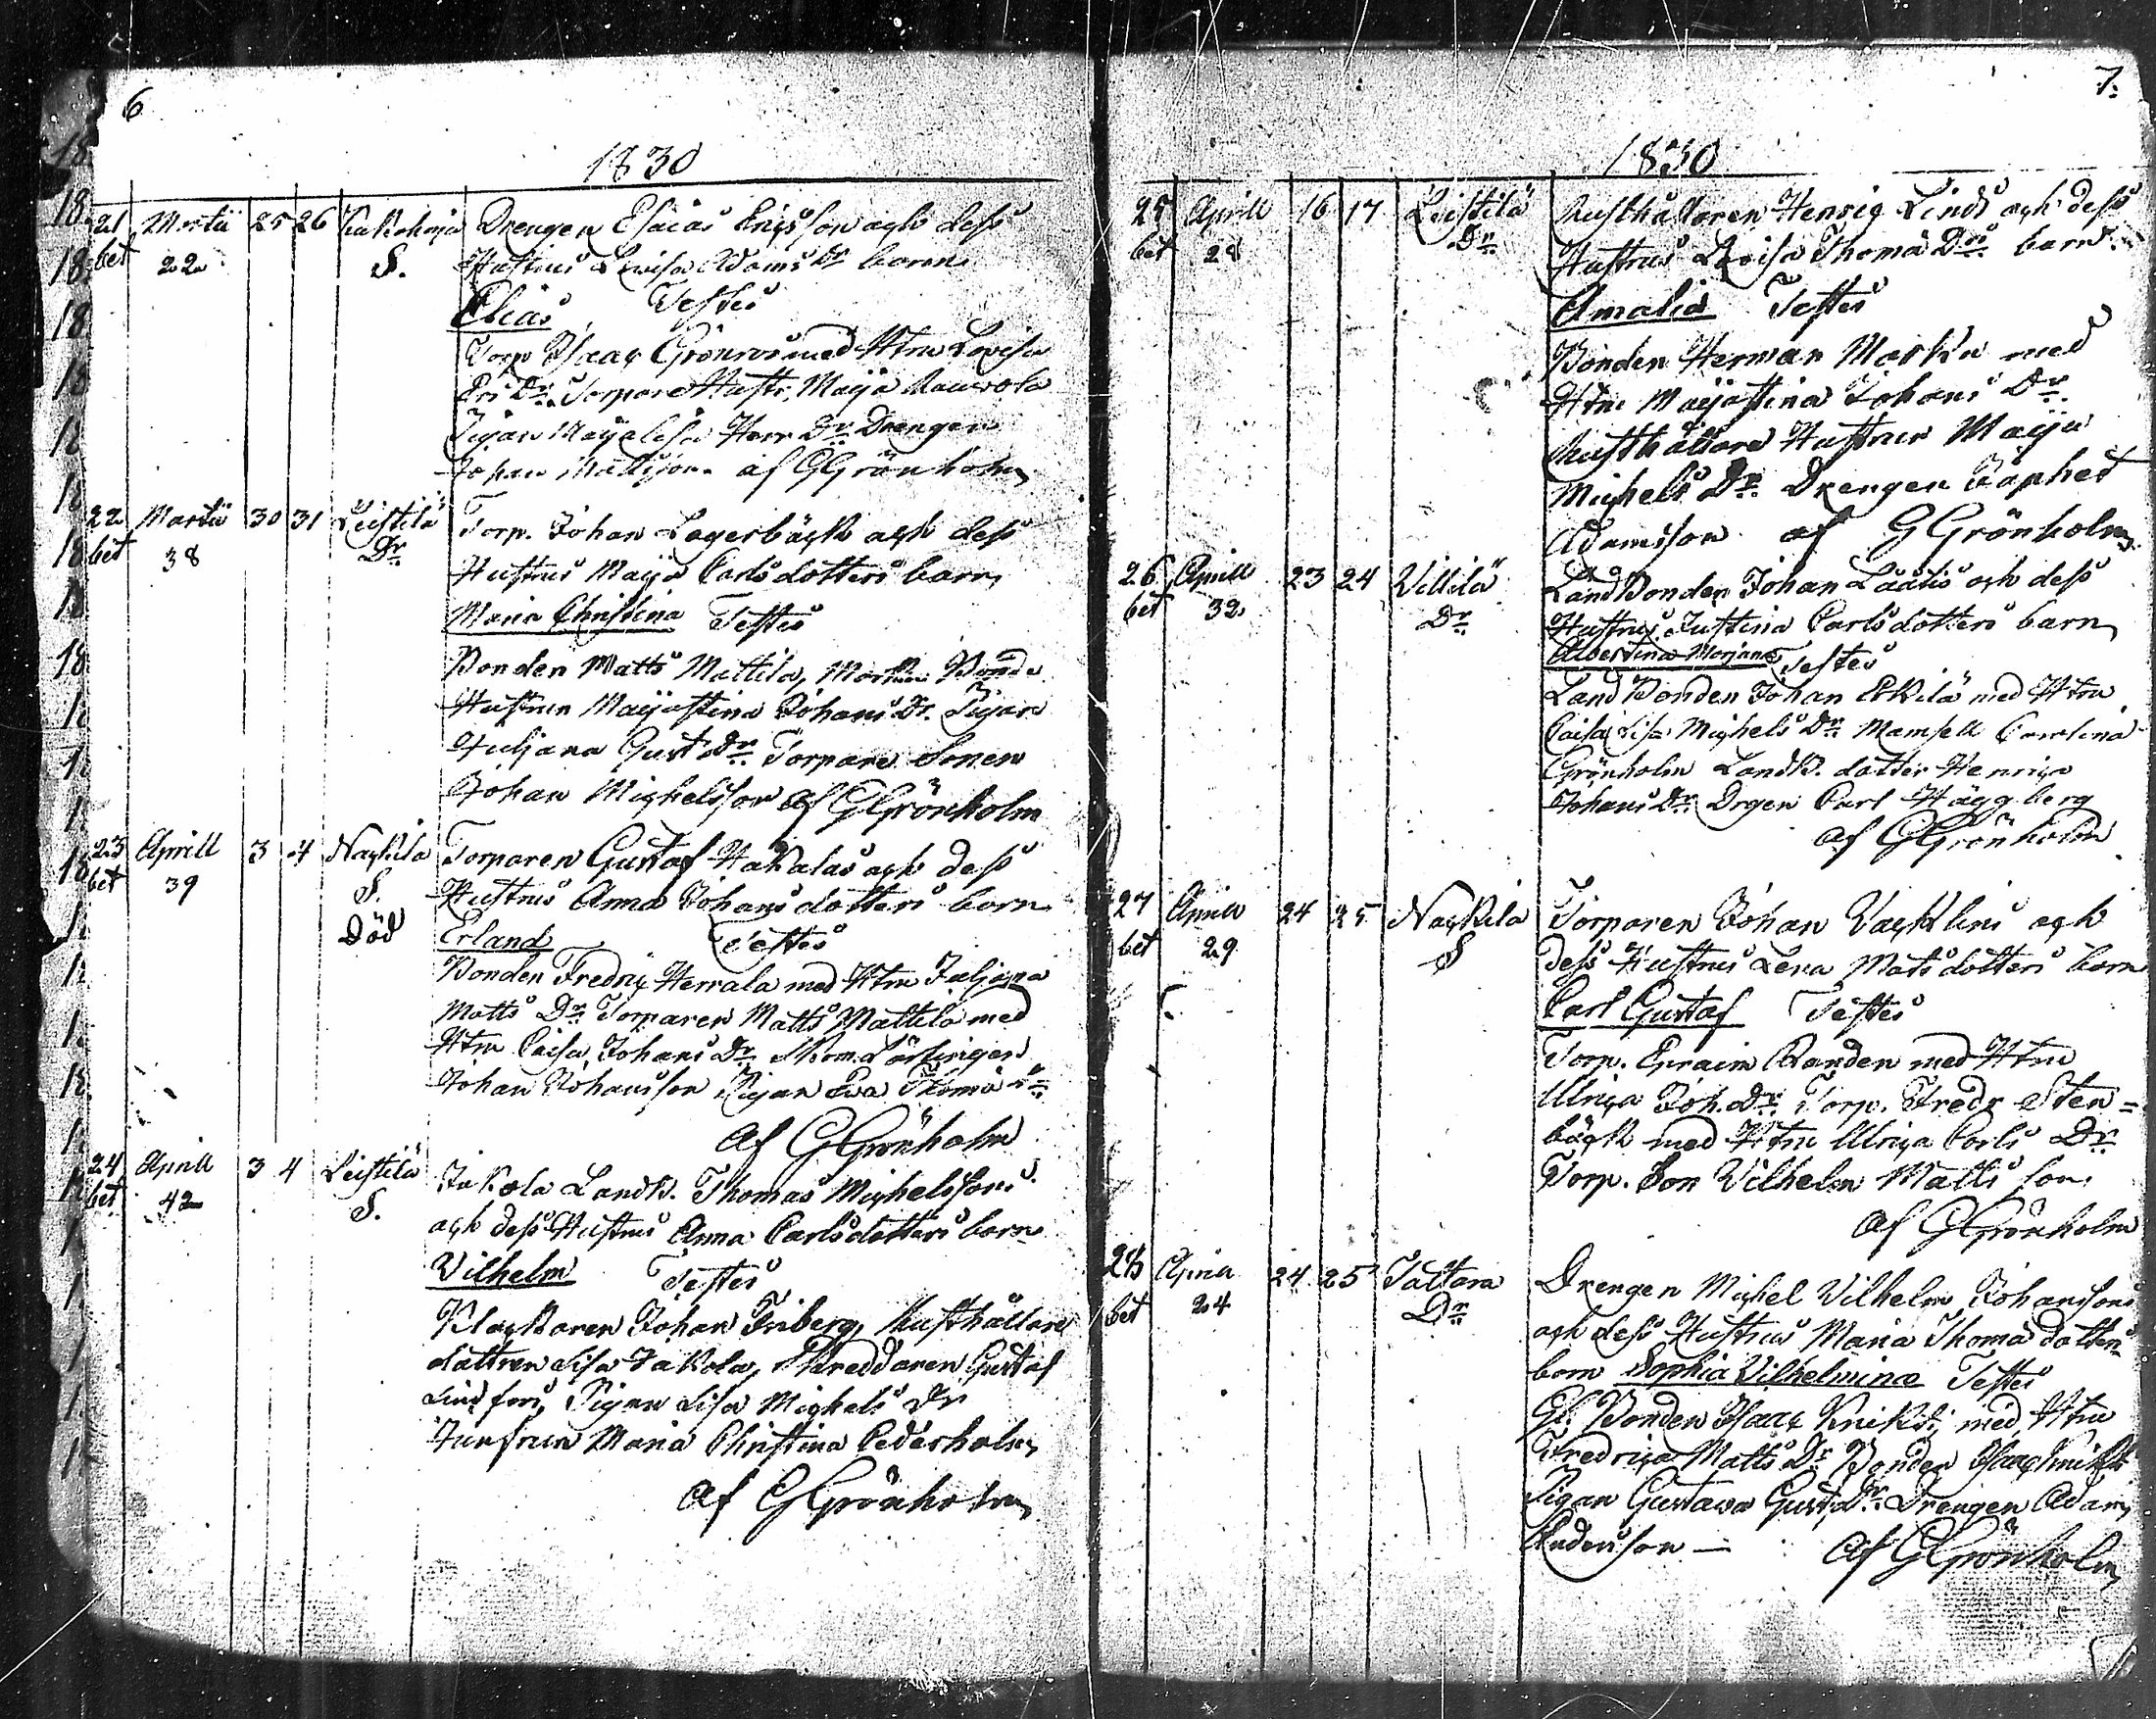 6
1830
21 Martii 25 26 Kakohaja Drengen Esaias Ericsson och dess
bet 22 S. Hustrus Lovisa Adams Dr barn
Elias Testes
Torp Isaac Grönroos med Htru Lovisa
Eri Dr. Torpare Hustr. Maja
Pigan Majalisa Henr Dr Drengen
Johan Mattsson. af GGrönholm
22 Martii 30 31 Leistilä Torp. Johan Lagerbäck och dess
bet 38 Dr Hustrus Maja Carlsdotters barn
Maria Christina Testes
Bonden Matts Mattila, Bonde
Hustrun Majastina Johans Dr. Pigan
Huljana Gust Dr. Torpare Sonen
Johan Michelsson af GGrönholm
23 Aprill 3 4 Nackila Torparen Gustaf Hakalas och dess
bet 39 S. Hustrus Anna Johansdotters barn
Död Erland Testes
Bonden Fredric Herrala med Htru Juljana
Matts Dr. Torparen Matts Mattila med
Htru Caisa Johans Dr.
Johan Johansson Pigan Eva Thoma Dr.
af GGrönholm
24 Aprill 3 4 Leistilä Jakola Landb. Thomas Michelssons
bet 42 S. och dess Hustrus Anna Carlsdotters barn
Vilhelm Testes
Klockaren Johan Friberg, Rusthållare
dottren Lisa Jakola, Skreddaren Gustaf
Lindfors, Pigan Lisa Michels Dr
Junfrun Maria Christina Cederholm
af GGrönholm
7.
1830
25 Aprill 16 17 Leistilä Rusthållaren Henric Linds och dess
bet 28 Dr. Hustrus Lovisa Thoma Drs. barn
Amalia Testes
Bonden Herman Marku med
Htru Majastina Johans Dr.
Rusthållare Hustrun Maija
Michels Dr. Drengen Japhet
Adamsson af GGrönholm
26 Aprill 23 24 Villilä LandBonden Johan Laatis och dess
bet 32 Dr. Hustrus Justina Carlsdotters barn
Albertina Testes
LandBonden Johan Erkilä med Htru
Caisa Lisa Michels Dr. Mamsell Carolina
Grönholm Landb. dotter Henrica
Johans Dr. Drgen Carl Häggberg
af GGrönholm
27 Aprill 24 25 Nackila Torparen Johan Vacklins och
bet 29 S dess Hustrus Lena Matsdotters barn
Carl Gustaf Testes
Torp. Epraim Randen med Htru
Ulrica Joh. Dr. Torp. Fredr Sten=
bäck med Htru Ulrica Carls Dr
Torp. Son Vilhelm Matts son
af GGrönholm
28 Aprill 24 25 Tattara Drengen Michel Vilhelm Johanssons
bet 24 Dr. och dess Hustrus Maria Thoma dotters
barn Sophia Vilhelmina Testes
Gl. Bonden Isaac Knikti med Htru
Fredrica Matts Dr Bonden Isaac Knikti
Pigan Gustava Gust. Dr. Drengen Adam
Andersson — af GGrönholm